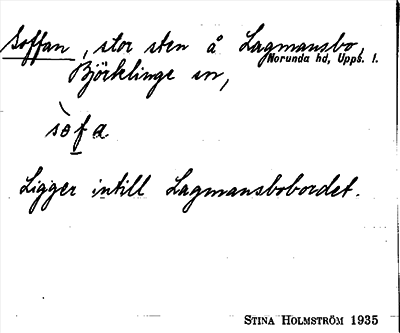 Soffan, stor sten å Lagmansbo,
Norunda hd, Upps. l.
Björklinge sn,
sòfa
Ligger intill Lagmansbobordet.
STINA HOLMSTRÖM 1935